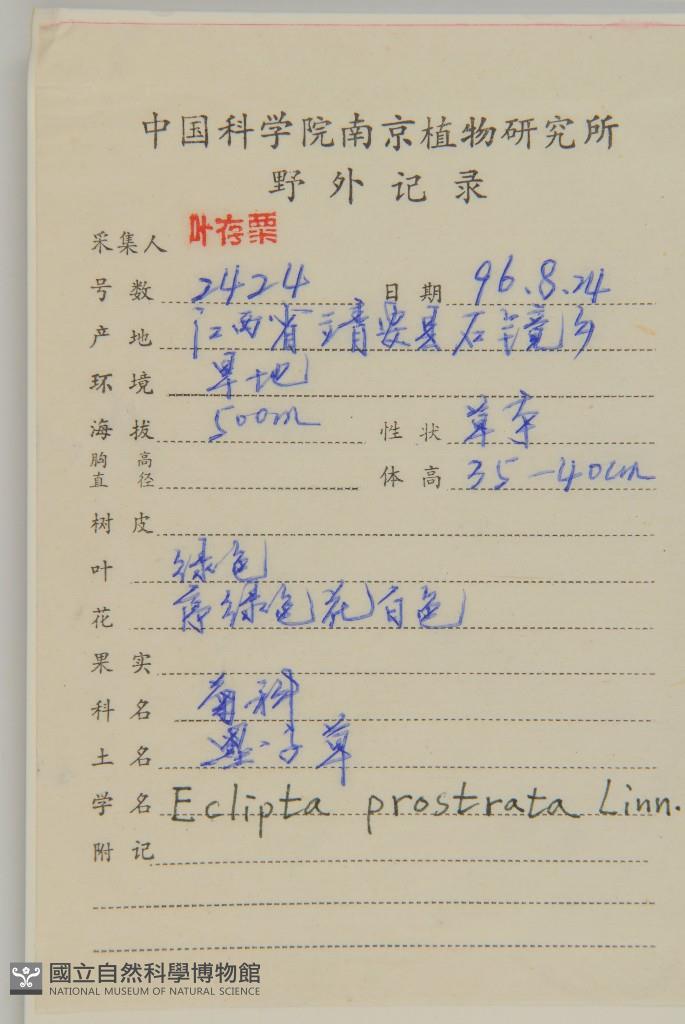 中国科学院南京植物研究所
野外记录
采集人 叶存粟
号数 2424 日期 96.8.24
产地 江西省靖安县石镜乡
环境 旱地
海拔 500m 性状 草本
胸高直径 体高 35-40cm
树皮
叶 绿色
花 萼绿色花白色
果实
科名 菊科
土名 墨子草
学名 Eclipta prostrata Linn.
附记
國立自然科學博物館
NATIONAL MUSEUM OF NATURAL SCIENCE